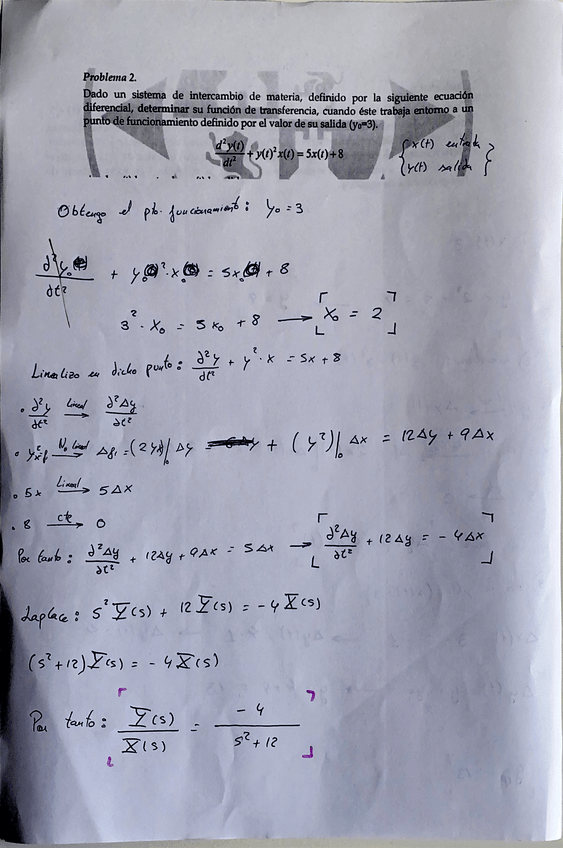 Problema 2.
Dado un sistema de intercambio de materia, definido por la siguiente ecuación
diferencial, determinar su función de transferencia, cuando éste trabaja entorno a un
punto de funcionamiento definido por el valor de su salida (y₀=3).
d²y(t)/dt² + y(t)²x(t) = 5x(t) + 8 { x(t) entrada
y(t) salida }
Obtengo el pto. funcionamiento: y₀ = 3
d²y₀/dt² + y₀² · x₀ = 5x₀ + 8
3² · x₀ = 5x₀ + 8 → [x₀ = 2]
Linealizo en dicho punto: d²y/dt² + y² · x = 5x + 8
· d²y/dt² Lineal → d²Δy/dt²
· y²x=f₁ No lineal → Δf₁ = (2yx)|₀ Δy + (y²)|₀ Δx = 12Δy + 9Δx
· 5x Lineal → 5Δx
· 8 cte → 0
Por tanto: d²Δy/dt² + 12Δy + 9Δx = 5Δx → [d²Δy/dt² + 12Δy = -4Δx]
Laplace: s² Y(s) + 12 Y(s) = -4 X(s)
(s²+12) Y(s) = -4 X(s)
Por tanto: [Y(s)/X(s) = -4/(s²+12)]